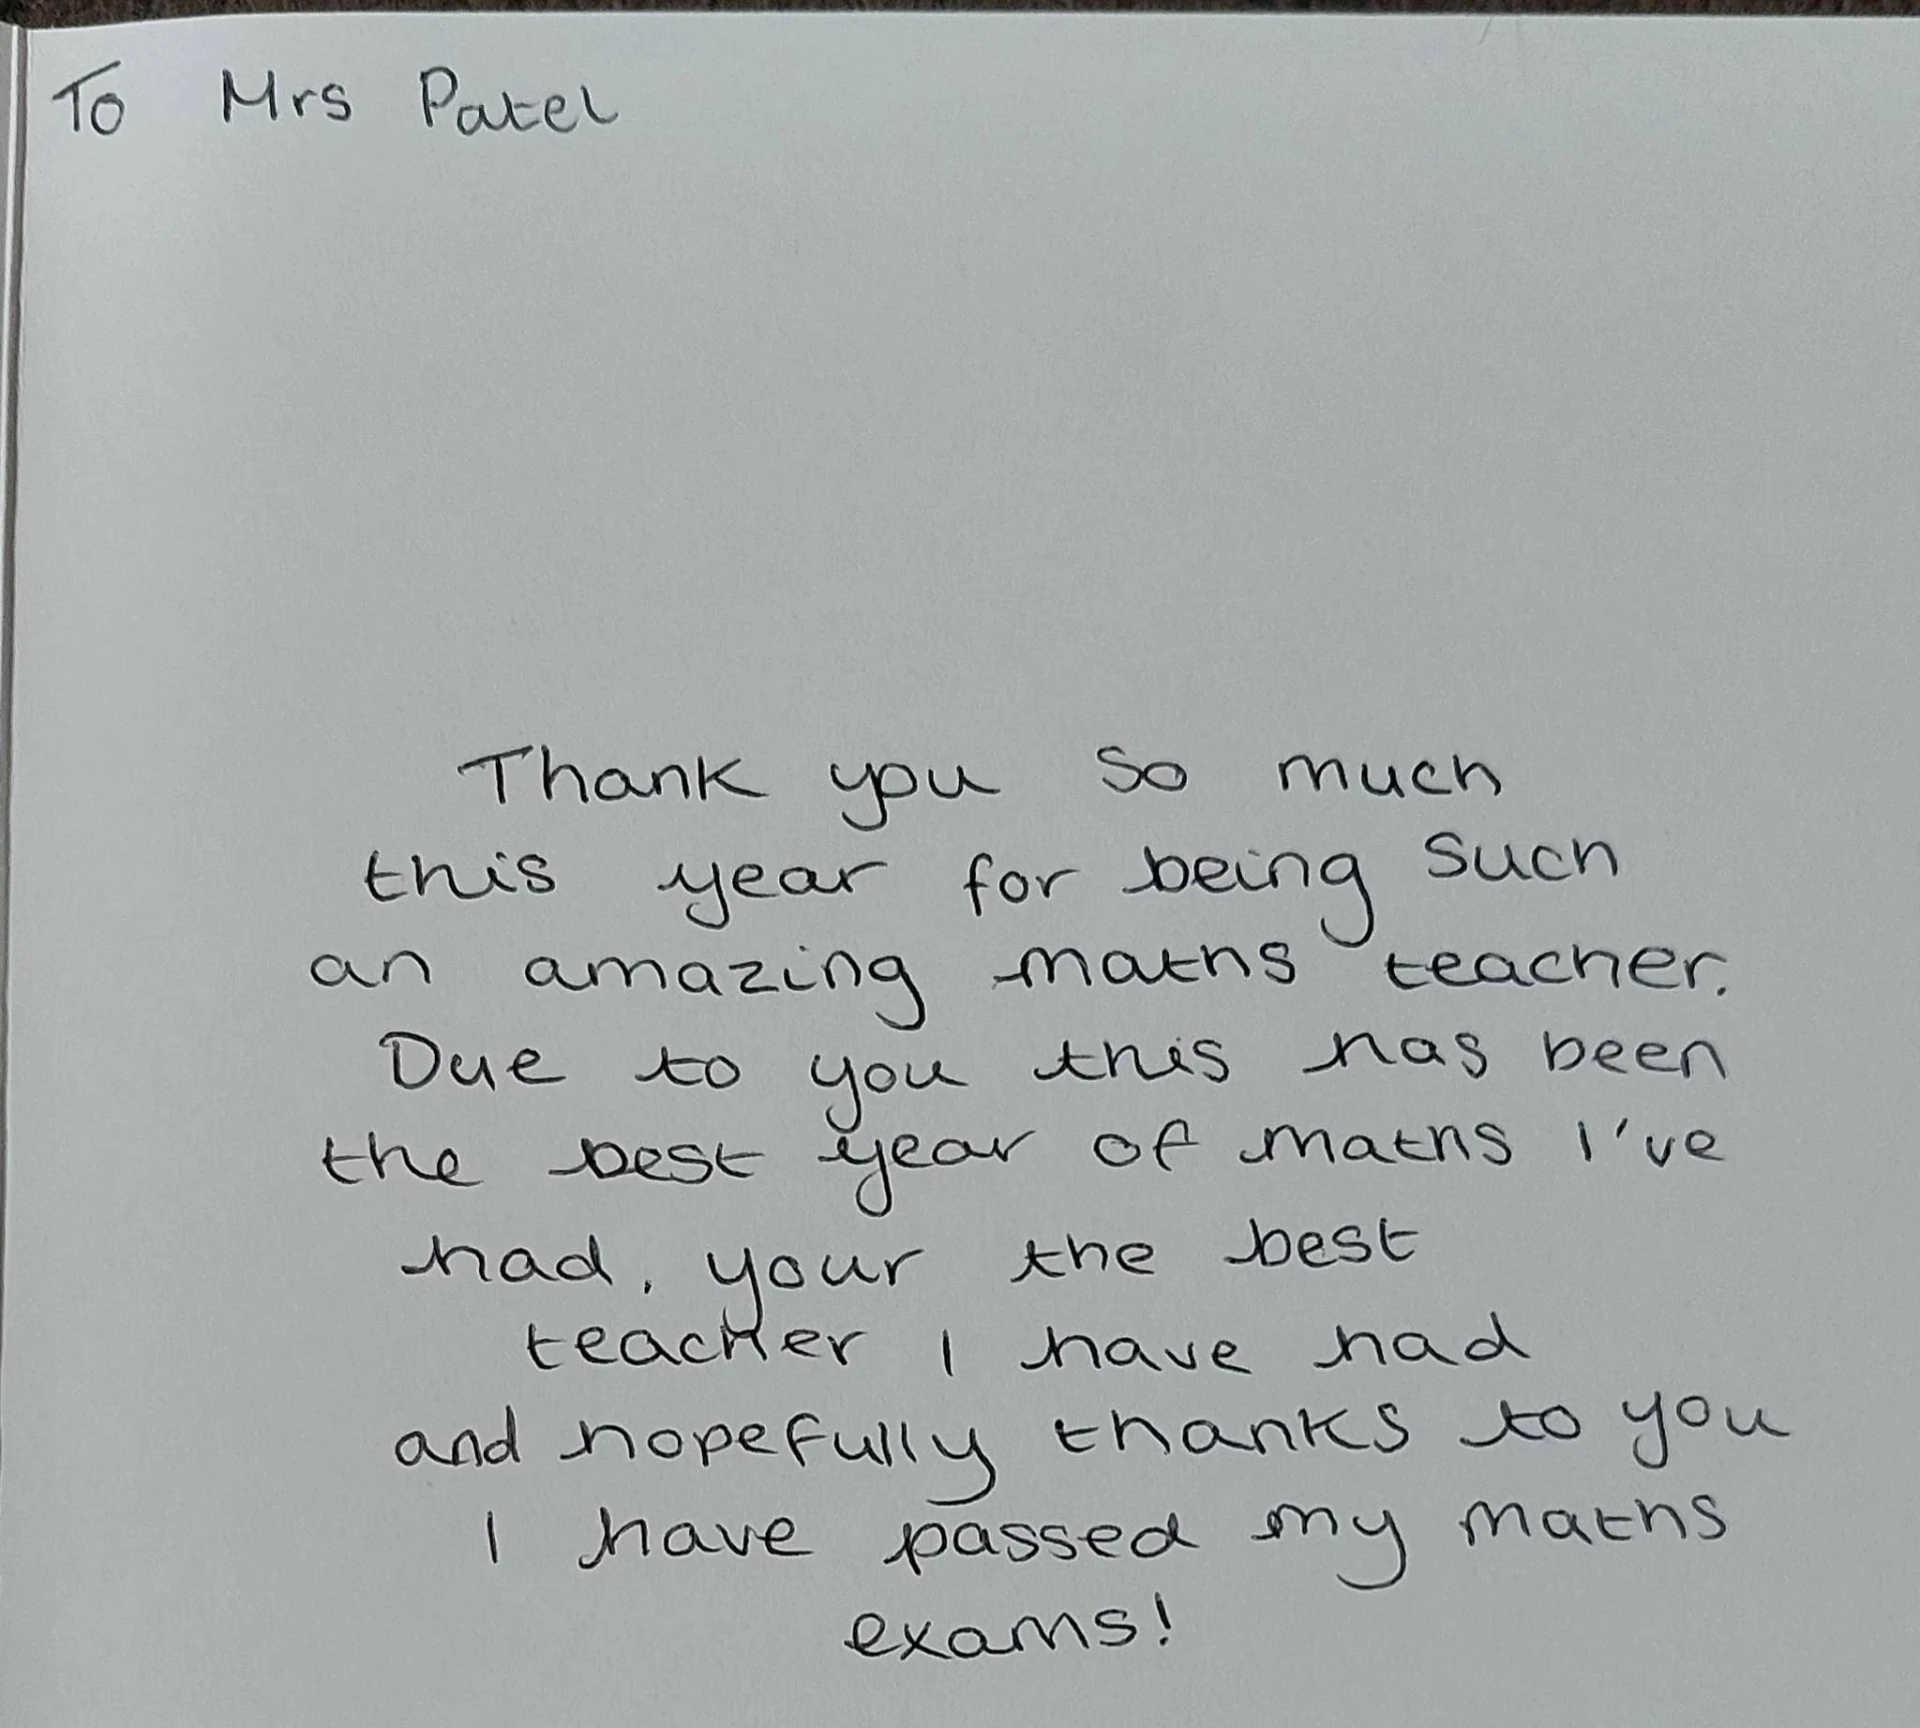 To Mrs Patel
Thank you so much
this year for being such
an amazing maths teacher.
Due to you this has been
the best year of maths I've
had, your the best
teacher I have had
and hopefully thanks to you
I have passed my maths
exams!